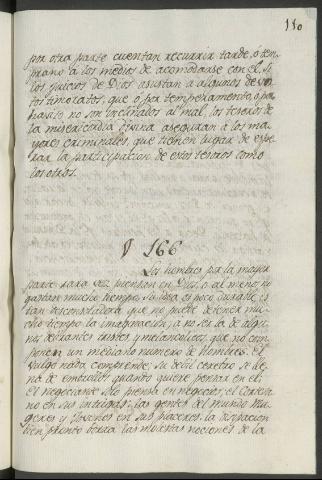 110
por otra parte cuentan recurrir tarde, o tem-
prano a los medios de acomodarse con el. Si
los juicios de Dios asustan a algunos devo-
tos timoratos, que o por temperamento, o por
habito no son inclinados al mal, los tesoros de
la misericordia divina aseguran a los ma-
yores criminales, que tienen lugar de espe-
rar la participacion de estos tesoros como
los otros.
§ 166
Los hombres por la mayor
parte rara vez piensan en Dios, o al menos
gastan mucho tiempo. Su idea es poco durable es
tan desconsoladora que no puede detener mu-
cho tiempo la imaginacion, a no ser la de algu-
nos tristes y melancolicos, que no com-
ponen un mediano numero de hombres. El
vulgo nada comprende; su debil cerebro se lle-
na de embrollos quando quiere pensar en el:
El negociante solo piensa en negocios, el Cortesa-
no en sus intrigas: las gentes del mundo Mu-
geres y Jovenes en sus placeres. la disipacion
bien pronto borra las molestas nociones de la